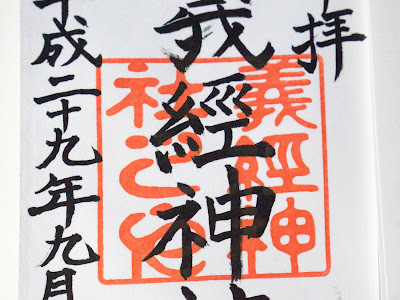 奉拝
義經神社
平成二十九年九月
義經神
社之印